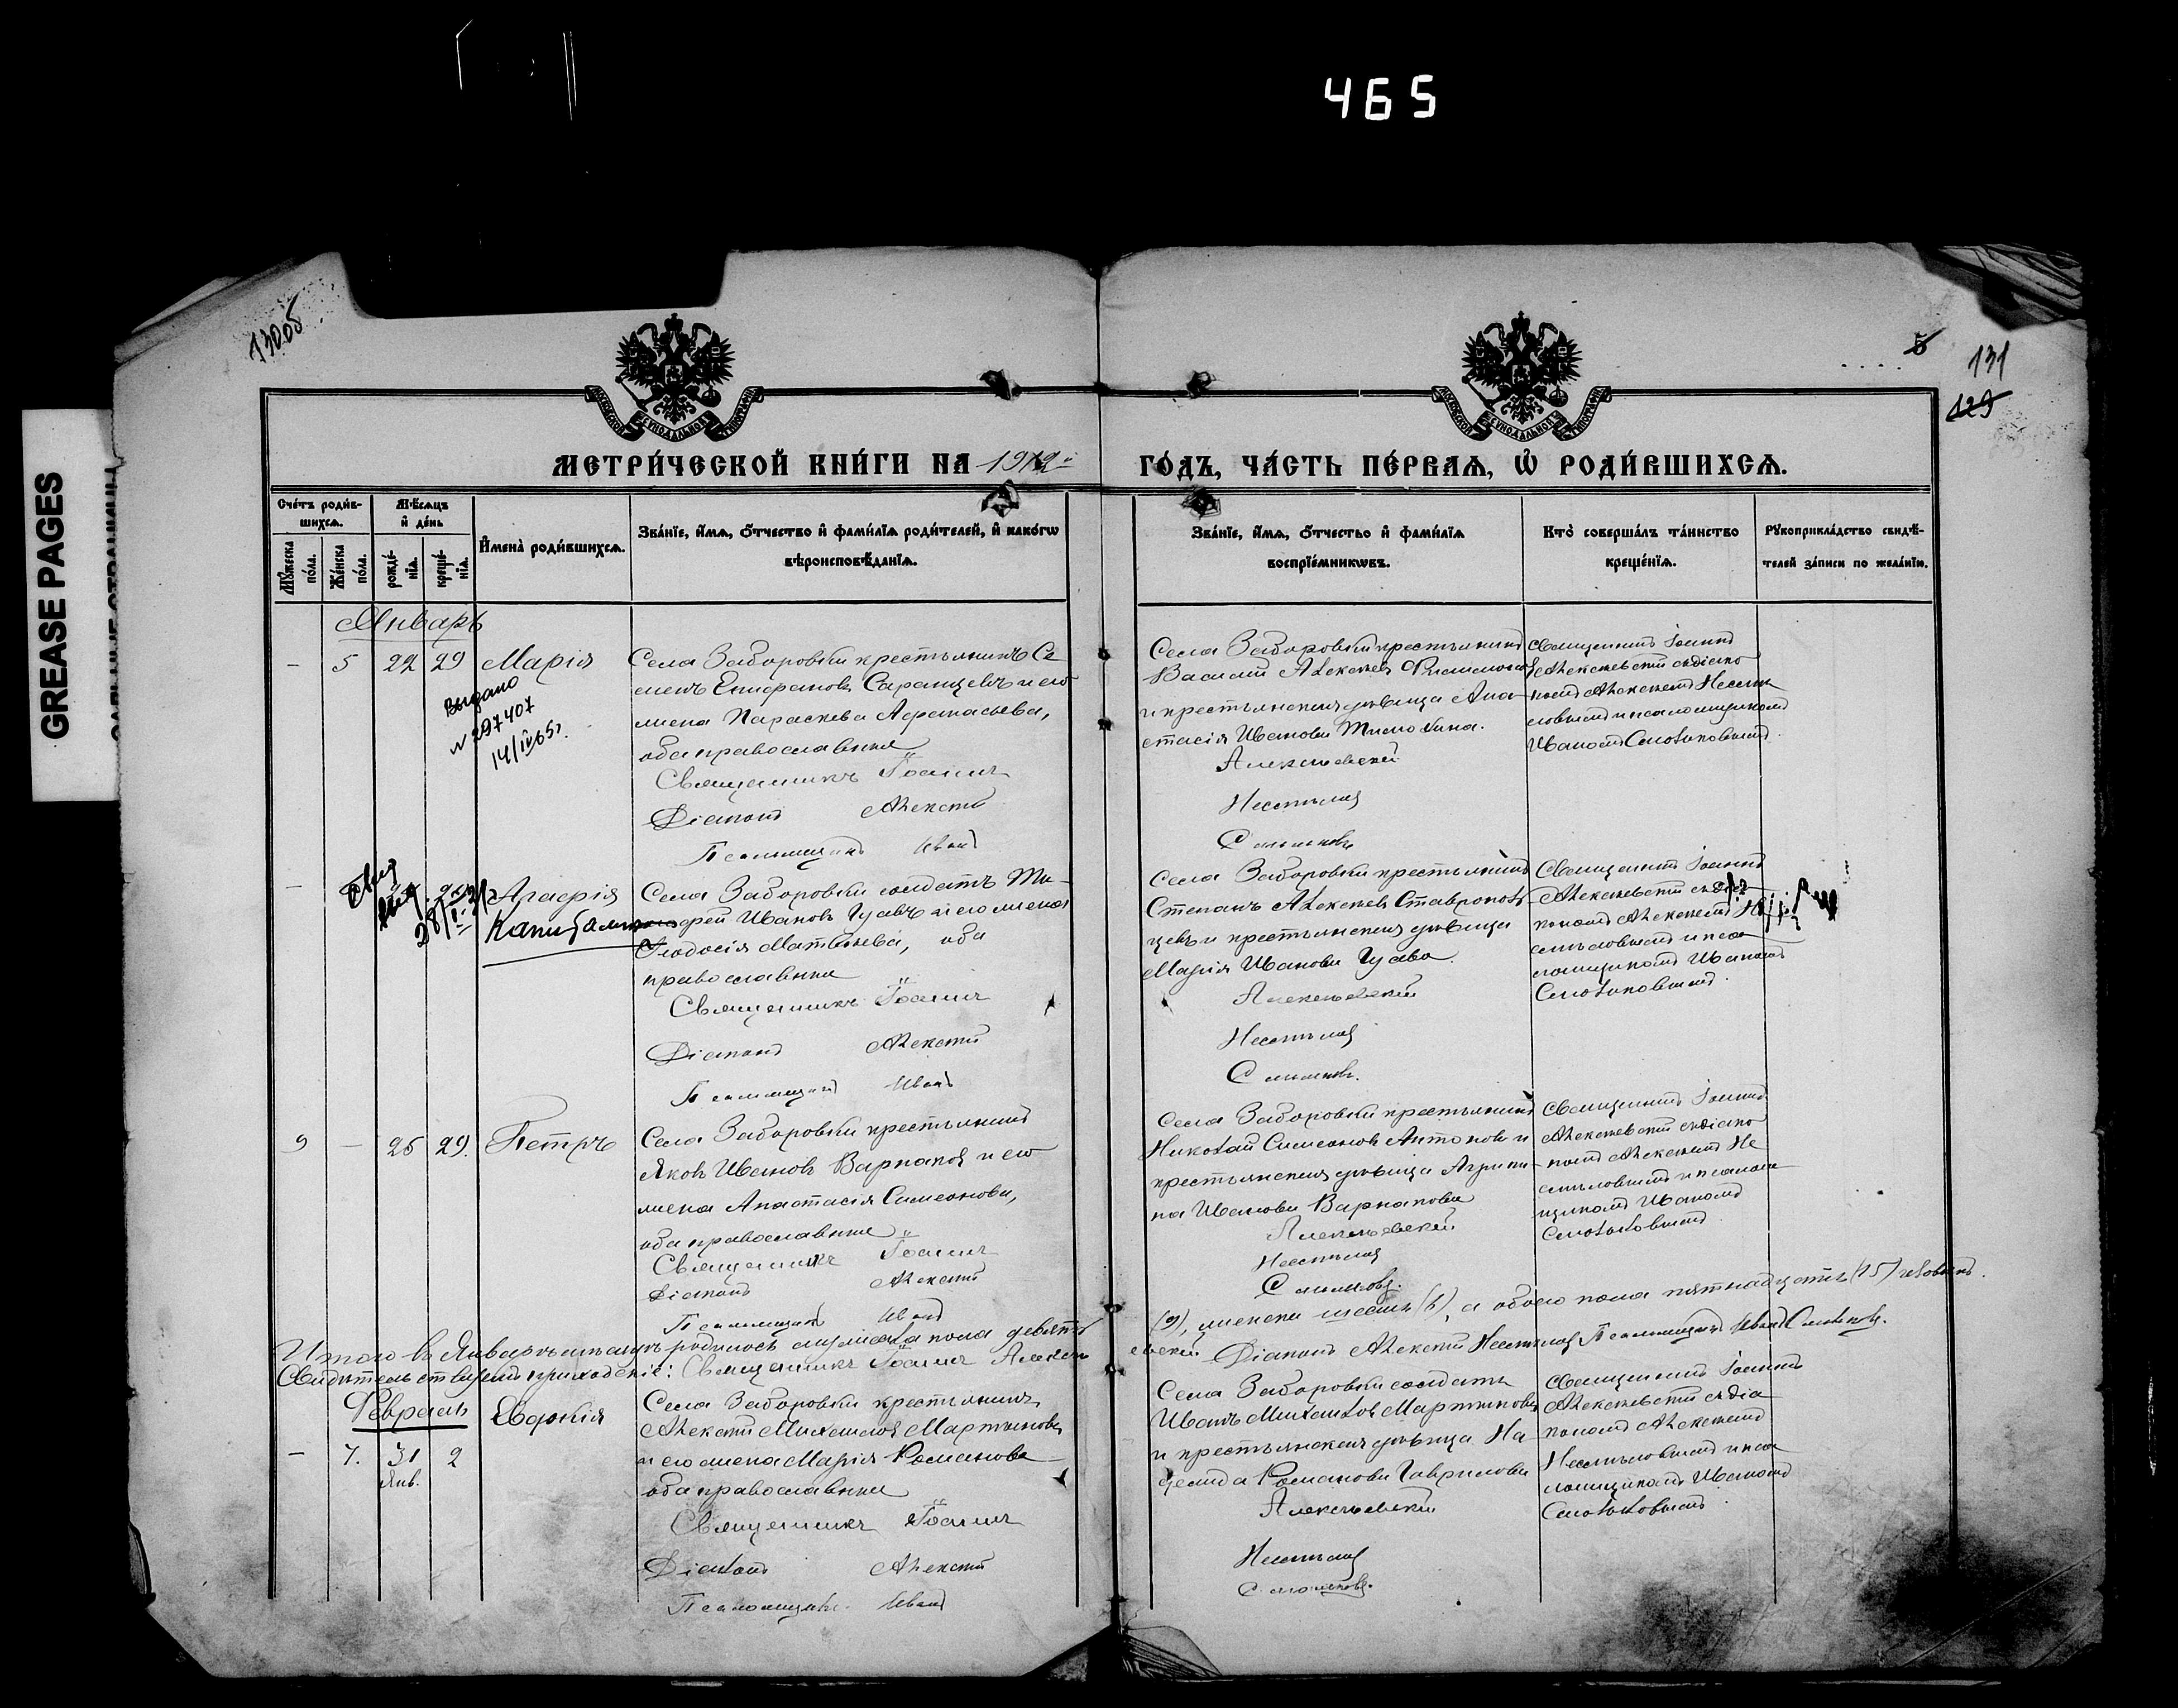 465
GREASE PAGES
130об
5
131
129
МЕТРИ́ЧЕСКОЙ КНИ́ГИ НА 1912 й
ГО́ДЪ, ЧА́СТЬ ПЕ́РВАѦ, Ѡ РОДИ́ВШИХСѦ.
Сче́тъ роди́в-
шихсѧ.
Мꙋ́жеска по́ла.
Же́нска по́ла.
Мѣ́сѧцъ
и҆ де́нь
рожде́-
нїѧ.
креще́-
нїѧ.
И҆мена̀ роди́вшихсѧ.
Зва́нїе, и҆́мѧ, ѻ҆́тчество и҆ фамѝлїѧ роди́телей, и҆ како́гѡ
вѣроисповѣ́данїѧ.
Зва́нїе, и҆́мѧ, ѻ҆́тчество и҆ фами́лїѧ
воспрїе́мникѡвъ.
Кто̀ соверша́лъ та́инство
креще́нїѧ.
Рꙋкоприкла́дство свидѣ́-
телей за́писи по жела́нїю.
Январь
– 5 22 29 Марія
Села Заборовки крестьянинъ Се
менъ Епифановъ Саранцевъ и его
жена Параскева Афанасьева,
оба православные
Священникъ Іоаннъ
Діаконъ Алексѣй
Псаломщикъ Иванъ
Выдано
N 297407
14/IV 65 г.
Села Заборовки крестьянинъ
Василій Алексѣевъ
и крестьянская дѣвица Ана-
стасія Иванова
Алексѣевскій
Несмѣловъ
Смольковъ
Священникъ Іоаннъ
Алексѣевскій съ діако
номъ Алексѣемъ Несмѣ
ловымъ и псаломщикомъ
Иваномъ Смольковымъ.
– Агафія
Села Заборовки солдатъ Ти-
мофей Ивановъ Гусевъ и его жена
Ѳеодосія Матвѣева, оба
православные
Священникъ Іоаннъ
Діаконъ Алексѣй
Псаломщикъ Иванъ
Села Заборовки крестьянинъ
Степанъ Алексѣевъ
цевъ и крестьянская дѣвица
Марія Иванова Гусева.
Алексѣевскій
Несмѣловъ
Смольковъ.
Священникъ Іоаннъ
Алексѣевскій съ діа
кономъ Алексѣемъ Не
смѣловымъ и пса
ломщикомъ Иваномъ
Смольковымъ.
9 – 26 29. Петръ
Села Заборовки крестьянинъ
Яковъ Ивановъ Варнаковъ и его
жена Анастасія Симеонова,
оба православные
Священникъ Іоаннъ
Діаконъ Алексѣй
Псаломщикъ Иванъ
Села Заборовки крестьянинъ
Николай Симеоновъ Антоновъ и
крестьянская дѣвица Агрипи-
на Иванова Варнакова
Алексѣевскій
Несмѣловъ
Смольковъ.
Священникъ Іоаннъ
Алексѣевскій съ діако
номъ Алексѣемъ Не
смѣловымъ и псалом
щикомъ Иваномъ
Смольковымъ.
Итого въ Январѣ мѣсяцѣ родилось мужеска пола девять (9), женска шесть (6), а обоего пола пятнадцать (15) человѣкъ.
Свидѣтельствуемъ: Священникъ Іоаннъ Алексѣевскій Діаконъ Алексѣй Несмѣловъ Псаломщикъ Иванъ Смольковъ.
Февраль
– 7. 31 2 Евдокія
янв.
Села Заборовки крестьянинъ
Алексѣй Михайловъ Мартыновъ
и его жена Марія Романова
оба православные
Священникъ Іоаннъ
Діаконъ Алексѣй
Псаломщикъ Иванъ
Села Заборовки солдатъ
Иванъ Михайловъ Мартыновъ
и крестьянская дѣвица На
дежда Романова Гаврилова
Алексѣевскій
Несмѣловъ
Смольковъ.
Священникъ Іоаннъ
Алексѣевскій съ діа
кономъ Алексѣемъ
Несмѣловымъ и пса
ломщикомъ Иваномъ
Смольковымъ.